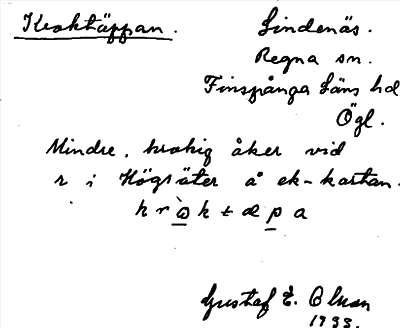 Kroktäppan.
Lindenäs.
Regna sn.
Finspånga läns hd
Ögl.
Mindre, krokig åker vid
r i Högsäter å ek-kartan.
k r ò̲ k t æ p̲ a
Gustaf E. Olson
1933.